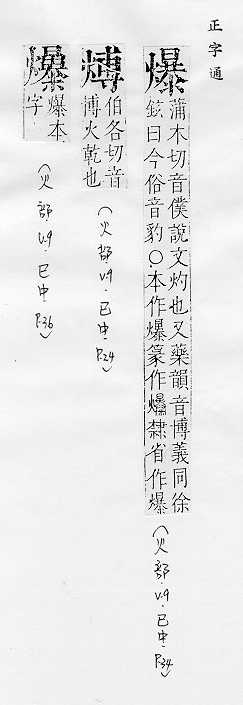 正字通
爆
蒲木切音僕說文灼也又藥韻音博義同徐
鉉曰今俗音豹〇本作篆作隸省作爆
（火部．V.9．巳中．P.34）
煿
伯各切音
博火乾也
（火部．V.9．巳中．P.24）
爆本
字
（火部．V.9．巳中．P.36）